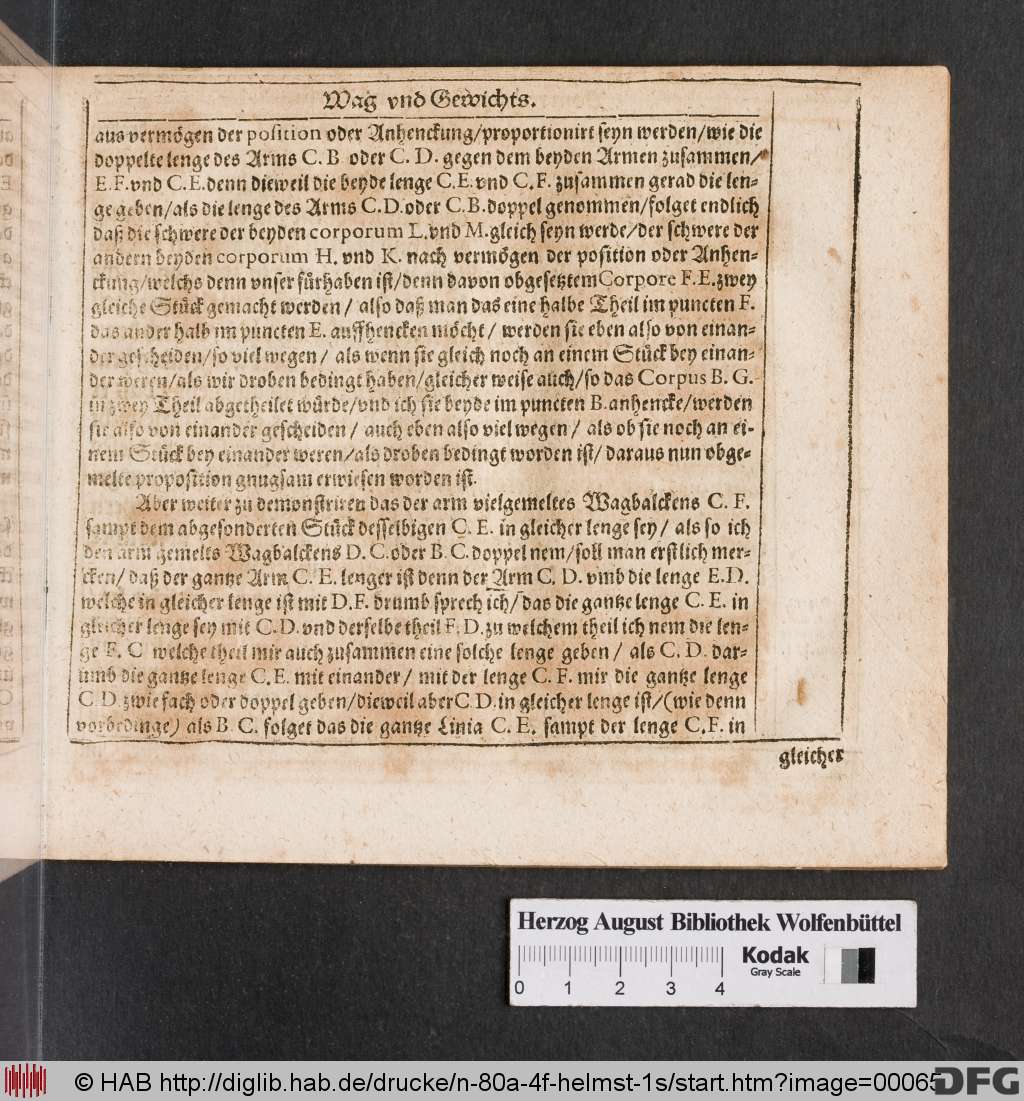 Wag vnd Gewichts.
aus vermögen der position oder Anhenckung/proportionirt seyn werden/wie die
doppelte lenge des Arms C. B oder C. D. gegen dem beyden Armen zusammen/
E. F. vnd C. E. denn dieweil die beyde lenge C. E. vnd C. F. zusammen gerad die len-
ge geben/als die lenge des Arms C. D. oder C. B. doppel genommen/folget endlich
daß die schwere der beyden corporum L. vnd M. gleich seyn werde/der schwere der
andern beyden corporum H. vnd K. nach vermögen der position oder Anhen-
ckung/welchs denn vnser fürhaben ist/denn davon obgesetztem Corpore F. E. zwey
gleiche Stück gemacht werden / also daß man das eine halbe Theil im puncten F.
das ander halb im puncten E. auffhencken möcht / werden sie eben also von einan-
der gescheiden/so viel wegen / als wenn sie gleich noch an einem Stück bey einan-
der weren/als wir droben bedingt haben/gleicher weise auch/so das Corpus B. G.
in zwey Theil abgetheilet würde/vnd ich sie beyde im puncten B. anhencke/werden
sie also von einander gescheiden / auch eben also viel wegen / als ob sie noch an ei-
nem Stück bey einander weren/als droben bedingt worden ist/ daraus nun obge-
melte proposition gnugsam erwiesen worden ist.
Aber weiter zu demonstriren das der arm vielgemeltes Wagbalckens C. F.
sampt dem abgesonderten Stück desselbigen C. E. in gleicher lenge sey / als so ich
den arm gemelts Wagbalckens D. C. oder B. C. doppel nem/soll man erstlich mer-
cken/ daß der gantze Arm C. E. lenger ist denn der Arm C. D. vmb die lenge E. D.
welche in gleicher lenge ist mit D. F. drumb sprech ich/ das die gantze lenge C. E. in
gleicher lenge sey mit C. D. vnd derselbe theil F. D. zu welchem theil ich nem die len-
ge F. C welche theil mir auch zusammen eine solche lenge geben / als C. D. dar-
umb die gantze lenge C. E. mit einander / mit der lenge C. F. mir die gantze lenge
C. D. zwiefach oder doppel geben/dieweil aber C D. in gleicher lenge ist/(wie denn
vorbedinge) als B. C. folget das die gantze Linia C. E. sampt der lenge C. F. in
gleicher
Herzog August Bibliothek Wolfenbüttel
Kodak
Gray Scale
0 1 2 3 4
© HAB http://diglib.hab.de/drucke/n-80a-4f-helmst-1s/start.htm?image=00065
DFG